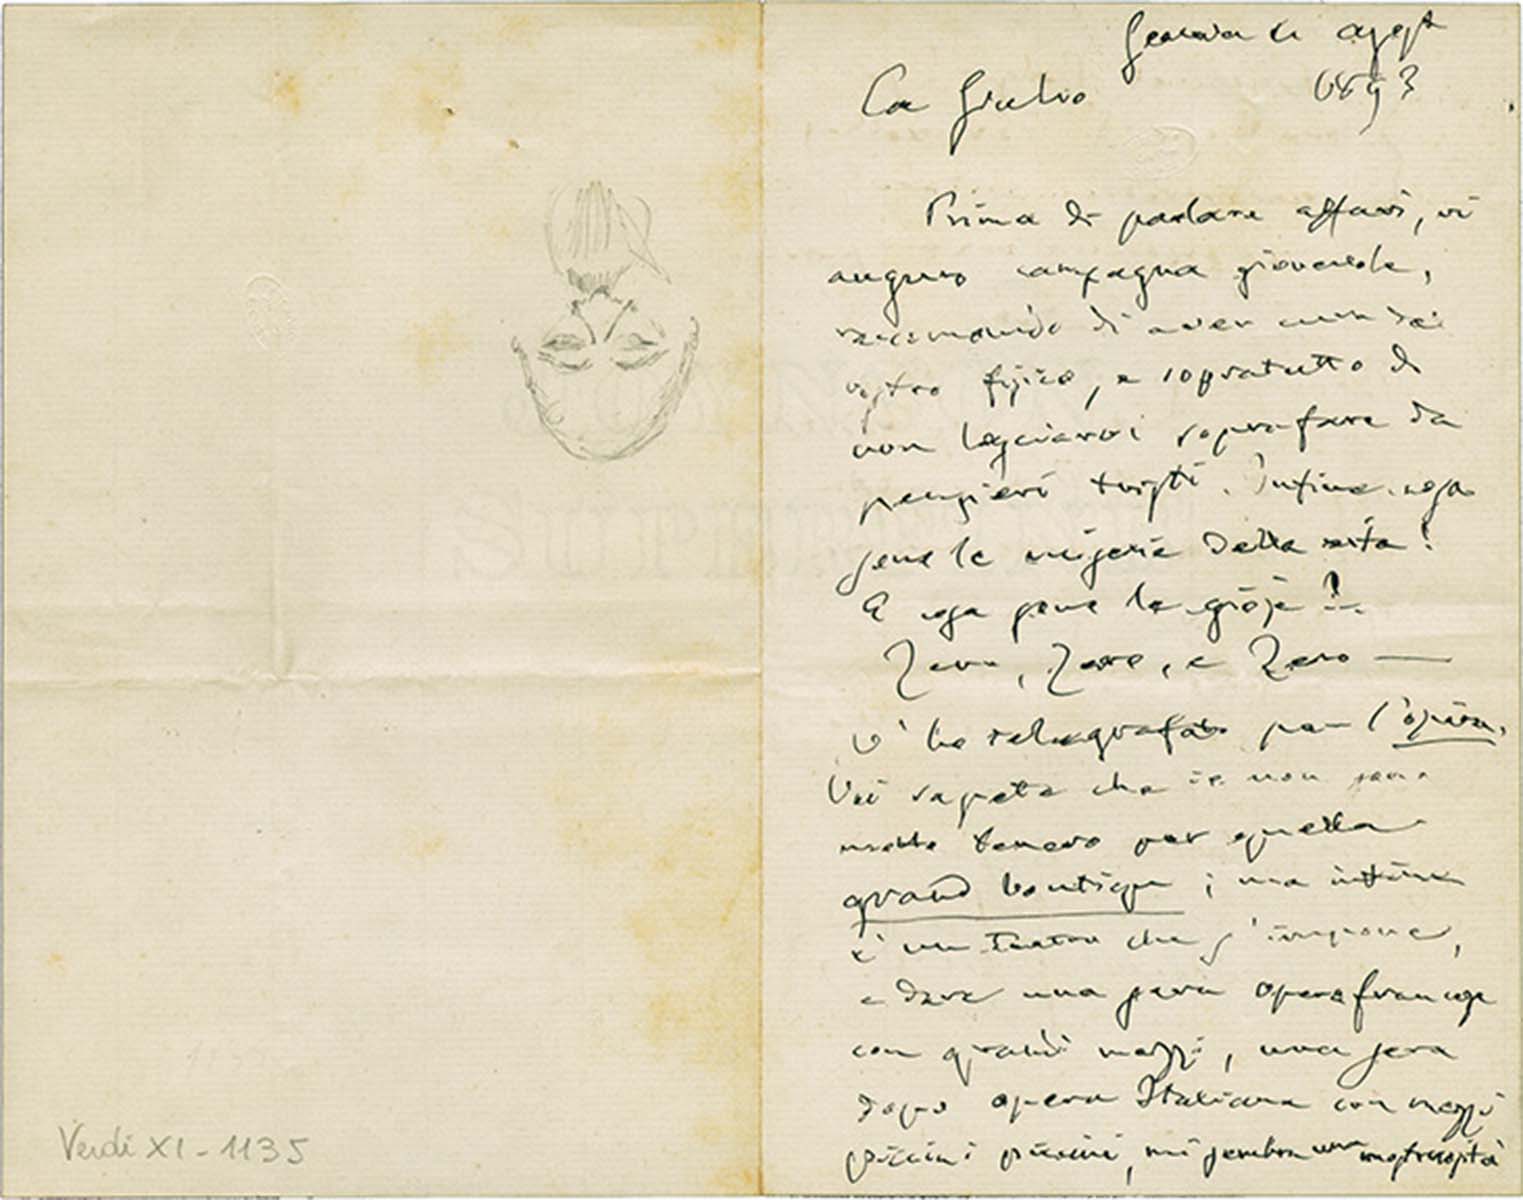 Verdi XI - 1135
Genova 4 agost
1893
Car Giulio
Prima di parlare affari, vi
auguro campagna giovevole,
raccomando di aver cura del
vostro fisico, e sopratutto di
non lasciarvi soprafare da
pensieri tristi. Infine cosa
sono le miserie della vita!
E cosa sono le gioje!..
Zero, Zero, e Zero —
V'ho telegrafato per l'opéra.
Voi sapete che io non sono
molto tenero per quella
grand boutique; ma infine
è un Teatro che s'impone,
e dare una sera opera francese
con grandi mezzi, una sera
dopo opera Italiana con mezzi
piccini piccini, mi sembra una mostruosità